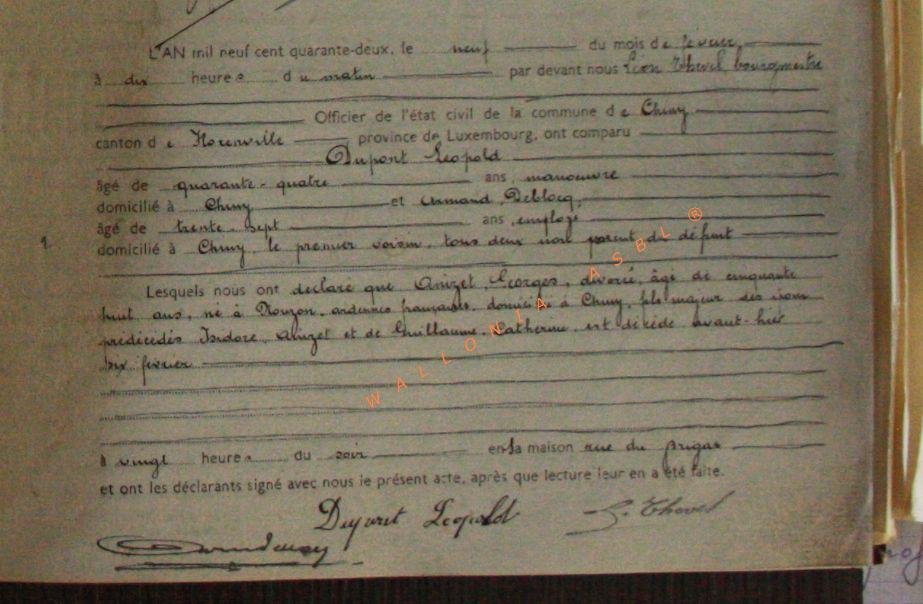 L'AN mil neuf cent quarante-deux, le neuf du mois de février,
à dix heures du matin par devant nous Léon Thevel bourgmestre
Officier de l'état civil de la commune de Chiny
canton de Florenville province de Luxembourg, ont comparu
Dupont Léopold
âgé de quarante-quatre ans, manoeuvre
domicilié à Chiny et Armand Deblocq,
âgé de trente-sept ans, employé
domicilié à Chiny, le premier voisin, tous deux non parent du défunt
Lesquels nous ont déclaré que Anizet, Georges, divorcé, âgé de cinquante
huit ans, né à Nouzon, ardennes françaises, domicilié à Chiny, fils majeur des
prédécédés Isidore Anizet et de Guillaume, Catherine, est décédé avant-hier
six février
à vingt heures du soir en sa maison rue du
et ont les déclarants signé avec nous le présent acte, après que lecture leur en a été faite.
Dupont Léopold L. Thevel
WALLONIA ASBL ®